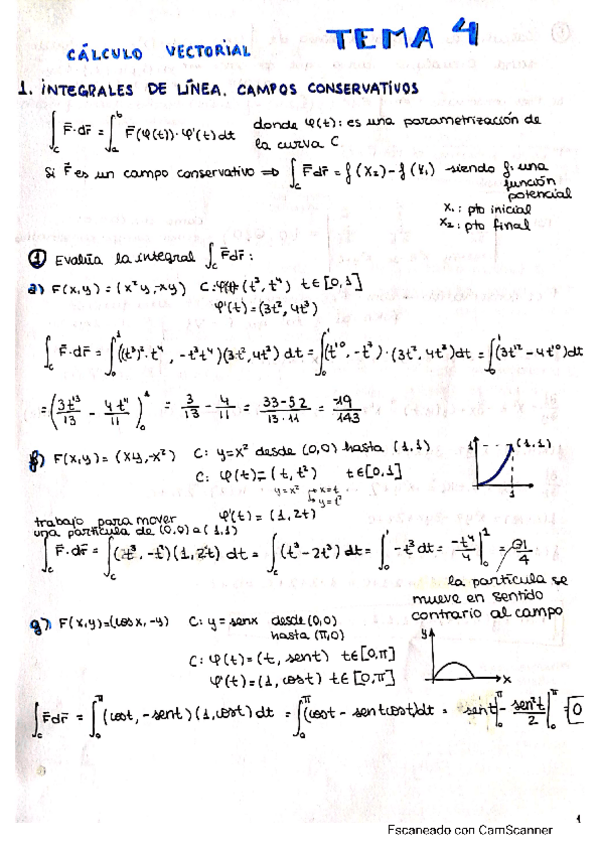 TEMA 4
CÁLCULO VECTORIAL
1. INTEGRALES DE LÍNEA. CAMPOS CONSERVATIVOS
∫_C F̄·dr̄ = ∫_a^b F̄(φ(t))·φ'(t)dt donde φ(t): es una parametrización de
la curva C
Si F̄ es un campo conservativo ⇒ ∫_C F̄dr̄ = f(X₂)-f(X₁) siendo f: una
función
potencial
X₁: pto inicial
X₂: pto final
① Evalúa la integral ∫_C F̄dr̄:
a) F(x,y) = (x²y, -xy) C: φ(t) (t³, t⁴) t∈[0,1]
φ'(t)=(3t², 4t³)
∫_C F̄·dr̄ = ∫_0^1 ((t³)²·t⁴, -t³t⁴)(3t², 4t³) dt = ∫_0^1 (t¹⁰, -t⁷)·(3t², 4t³)dt = ∫_0^1 (3t¹² - 4t¹⁰)dt
= (3t¹³/13 - 4t¹¹/11)_0^1 = 3/13 - 4/11 = 33-52/13·11 = -19/143
f) F(x,y) = (xy, -x²) C: y=x² desde (0,0) hasta (1,1)
1 (1,1)
C: φ(t)= (t, t²) t∈[0,1]
1
y=x² x=t
y=t²
trabajo para mover φ'(t) = (1,2t)
una partícula de (0,0) a (1,1)
∫_C F̄·dr̄ = ∫_C (t³, -t²)(1,2t) dt = ∫_C (t³-2t³) dt = ∫_0^1 -t³dt = -t⁴/4 |_0^1 = -1/4
la partícula se
mueve en sentido
contrario al campo
g) F(x,y)=(cosx, -y) C: y=senx desde (0,0)
hasta (π,0)
y
C: φ(t)=(t, sent) t∈[0,π]
φ'(t)=(1, cost) t∈[0,π]
x
∫_C F̄dr̄ = ∫_0^π (cost, -sent)(1,cost)dt = ∫_0^π (cost - sentcost)dt = sent|_0^π - sen²t/2 |_0^π = 0
1
Escaneado con CamScanner